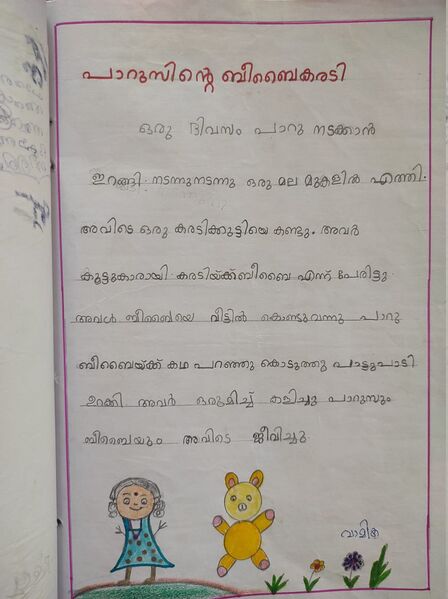 പാറുസിന്റെ ബീബൈകരടി
ഒരു ദിവസം പാറു നടക്കാൻ
ഇറങ്ങി. നടന്നുനടന്നു ഒരു മല മുകളിൽ എത്തി.
അവിടെ ഒരു കരടിക്കുട്ടിയെ കണ്ടു. അവർ
കൂട്ടുകാരായി കരടിയ്ക്ക് ബീബൈ എന്ന് പേരിട്ടു.
അവൾ ബീബൈയെ വീട്ടിൽ കൊണ്ടുവന്നു പാറു
ബീബൈയ്ക്ക് കഥ പറഞ്ഞു കൊടുത്തു പാട്ടുപാടി
ഉറക്കി അവർ ഒരുമിച്ച് കളിച്ചു പാറുസും
ബീബൈയും അവിടെ ജീവിച്ചു.
വാമിക